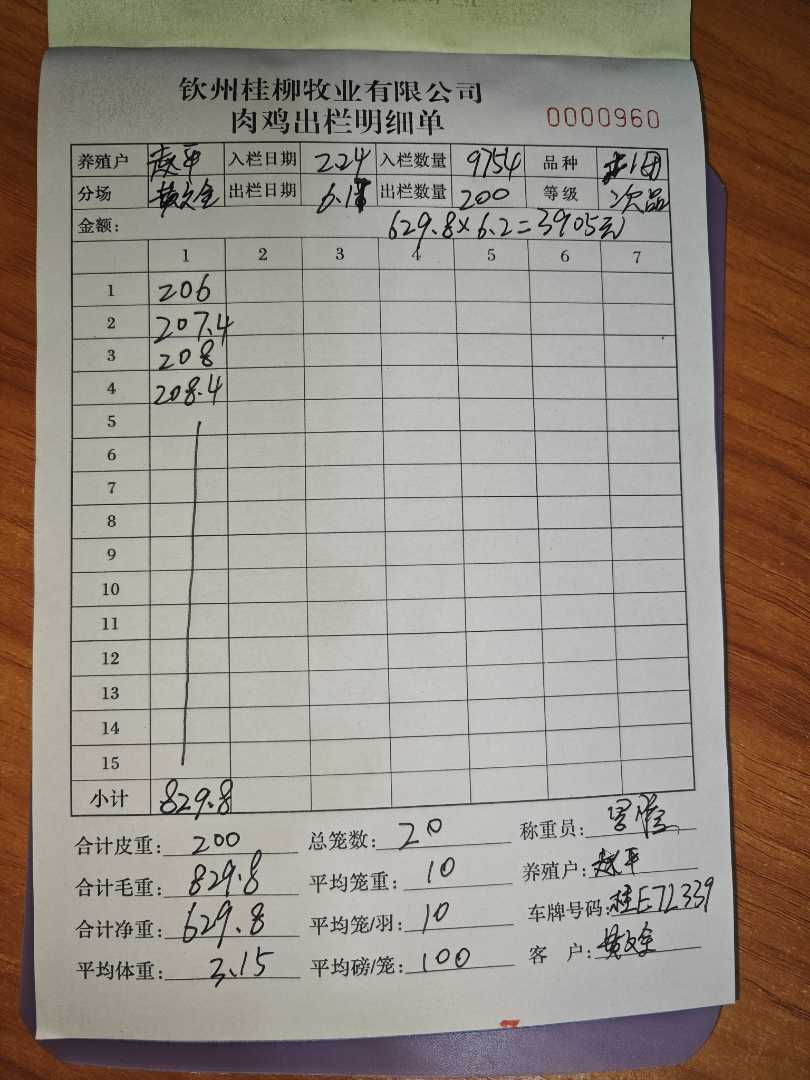 钦州桂柳牧业有限公司
肉鸡出栏明细单 0000960
养殖户 赵平 入栏日期 2.24 入栏数量 9754 品种
分场 黄文全 出栏日期 6.1 出栏数量 200 等级 次品
金额: 629.8×6.2=3905元
1 2 3 4 5 6 7
1 206
2 207.4
3 208
4 208.4
5
6
7
8
9
10
11
12
13
14
15
小计 829.8
合计皮重: 200 总笼数: 20 称重员:
合计毛重: 829.8 平均笼重: 10 养殖户: 赵平
合计净重: 629.8 平均笼/羽: 10 车牌号码: 桂E72339
平均体重: 3.15 平均磅/笼: 100 客 户: 黄文全